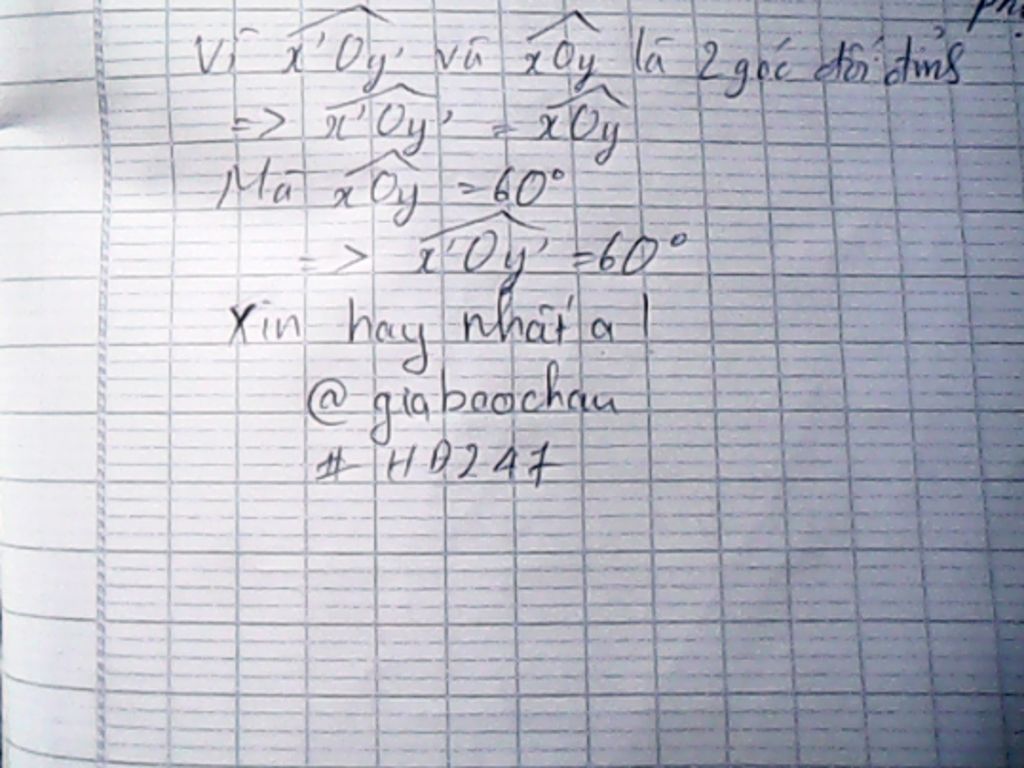 Vì x'Oy' và xOy là 2 góc đối đỉnh
=> x'Oy' = xOy
Mà xOy = 60°
=> x'Oy' = 60°
Xin hay nhất ạ !
@ giabaochau
# HD247